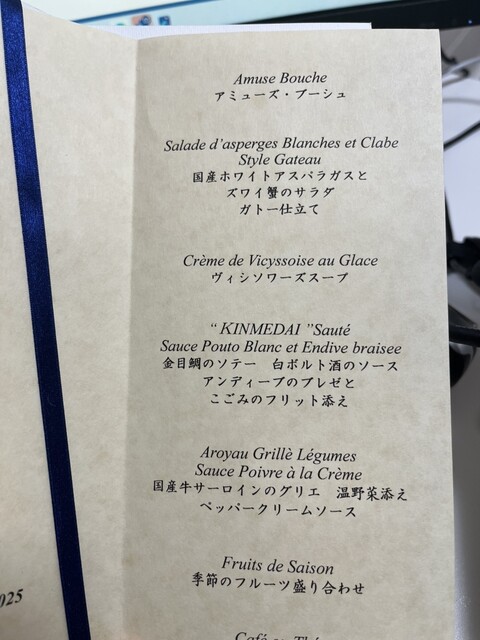 Amuse Bouche
アミューズ・ブーシュ
Salade d'asperges Blanches et Clabe
Style Gateau
国産ホワイトアスパラガスと
ズワイ蟹のサラダ
ガトー仕立て
Crème de Vicyssoise au Glace
ヴィシソワーズスープ
“ KINMEDAI ”Sauté
Sauce Pouto Blanc et Endive braisee
金目鯛のソテー　白ポルト酒のソース
アンディーブのブレゼと
こごみのフリット添え
Aroyau Grillè Légumes
Sauce Poivre à la Crème
国産牛サーロインのグリエ　温野菜添え
ペッパークリームソース
Fruits de Saison
季節のフルーツ盛り合わせ
025